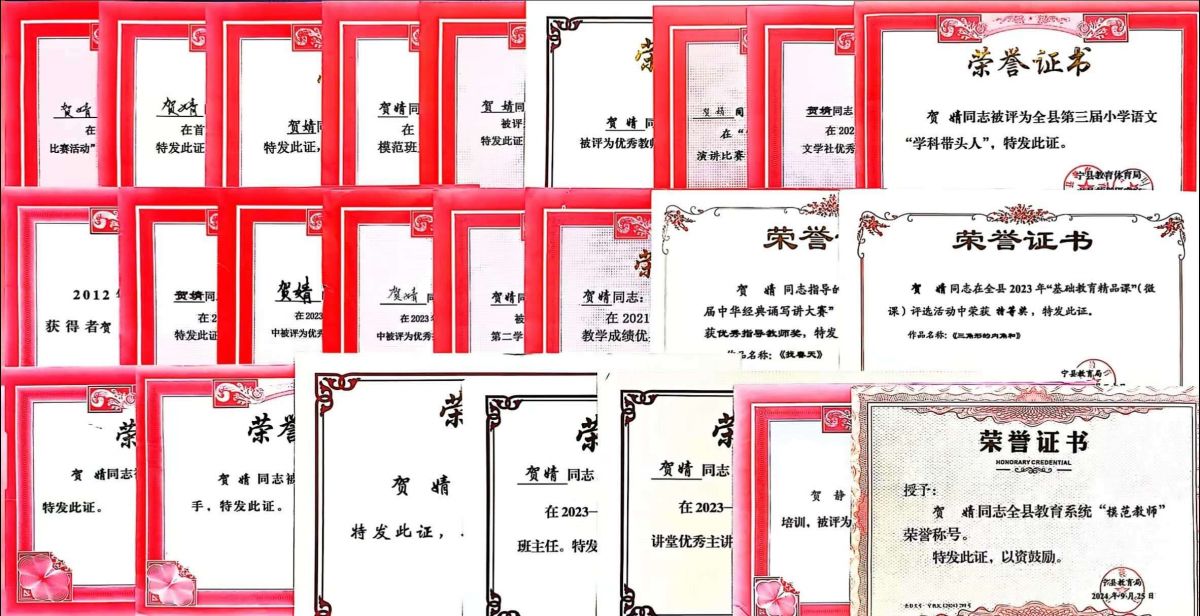 贺婧
在
比赛活动”
贺婧
在首
特发此证
贺婧同
特发此证，
贺婧同
在
模范班
贺婧同
被评
特发此证
荣
贺婧同
被评为优秀教师
贺婧同
在“
演讲比赛
贺婧同志
在202
文学社优秀
荣誉证书
贺婧同志被评为全县第三届小学语文
“学科带头人”，特发此证。
宁县教育体育局
2012
获得者贺
贺婧同
在2
特发此证
贺婧
中被评为优
贺婧同
在2023
中被评为优秀
贺婧同
在
第二学
荣
贺婧同志：
在2021
教学成绩优
荣誉
贺婧同志指导的
届中华经典诵写讲大赛”
获优秀指导教师奖，特发
作品名称：《找春天》
荣誉证书
贺婧同志在全县2023年“基础教育精品课”（微
课）评选活动中荣获 特等奖，特发此证。
作品名称：《三角形的内角和》
宁县教育局
荣
贺婧同志被
特发此证。
荣誉
贺婧同志被
手，特发此证。
荣
贺婧
特发此证，
荣
贺婧同志
在2023—
班主任。特发
荣
贺婧同志
在2023—
讲堂优秀主讲
贺静
培训，被评为
荣誉证书
HONORARY CREDENTIAL
授予：
贺婧同志全县教育系统“模范教师”
荣誉称号。
特发此证，以资鼓励。
宁县教育局
2024年9月25日